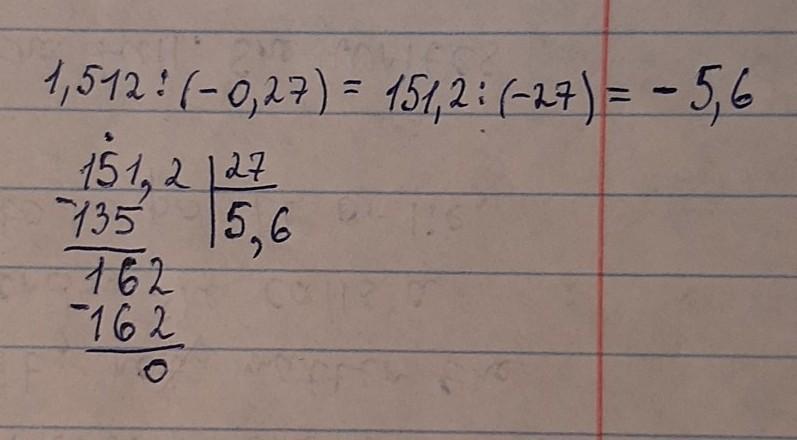 1,512 : (-0,27) = 151,2 : (-27) = -5,6
151,2 | 27
-135 | 5,6
162
-162
0